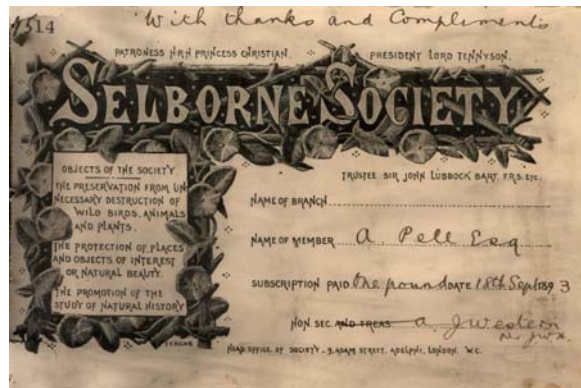 With thanks and Compliments
14
PATRONESS H.R.H. PRINCESS CHRISTIAN. PRESIDENT LORD TENNYSON.
SELBORNE SOCIETY
OBJECTS OF THE SOCIETY
THE PRESERVATION FROM UN
NECESSARY DESTRUCTION OF
WILD BIRDS, ANIMALS
AND PLANTS.
THE PROTECTION OF PLACES
AND OBJECTS OF INTEREST
OR NATURAL BEAUTY.
THE PROMOTION OF THE
STUDY OF NATURAL HISTORY
TRUSTEE SIR JOHN LUBBOCK BART. F.R.S. ETC.
NAME OF BRANCH
NAME OF MEMBER A. Pell Esq
SUBSCRIPTION PAID One pound DATE 18th Sept 1893
HON. SEC. AND TREAS. A J Western
HEAD OFFICE OF SOCIETY - 9, ADAM STREET, ADELPHI, LONDON. W.C.